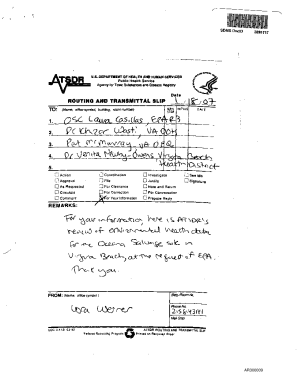 SDMS DocID
ATSDR
U.S. DEPARTMENT OF HEALTH AND HUMAN SERVICES
Public Health Service
Agency for Toxic Substances and Disease Registry
Date
ROUTING AND TRANSMITTAL SLIP
8/07
TO: (Name, office symbol, building, room number)
INITIALS
DATE
1. OSC Laura Casillas EPA R3
2. Dr. Khizar Wasti, VA DOH
3. Pat McMurray, VA DEQ
4. Dr. Venita Newby-Owens, Virginia Beach
5. Health District
Action
Coordination
Investigate
See Me
Approval
File
Justify
Signature
As Requested
For Clearance
Note and Return
Circulate
For Correction
Per Conversation
Comment
For Your Information
Prepare Reply
REMARKS:
For your information, here is ATSDR's
review of environmental health data
for the Oceana Salvage site in
Virginia Beach, at the request of EPA.
Thank you.
FROM: (Name, office symbol)
Room/Bldg
Lora Werner
Phone No.
ATSDR ROUTING AND TRANSMITTAL SLIP
Printed on Recycled Paper